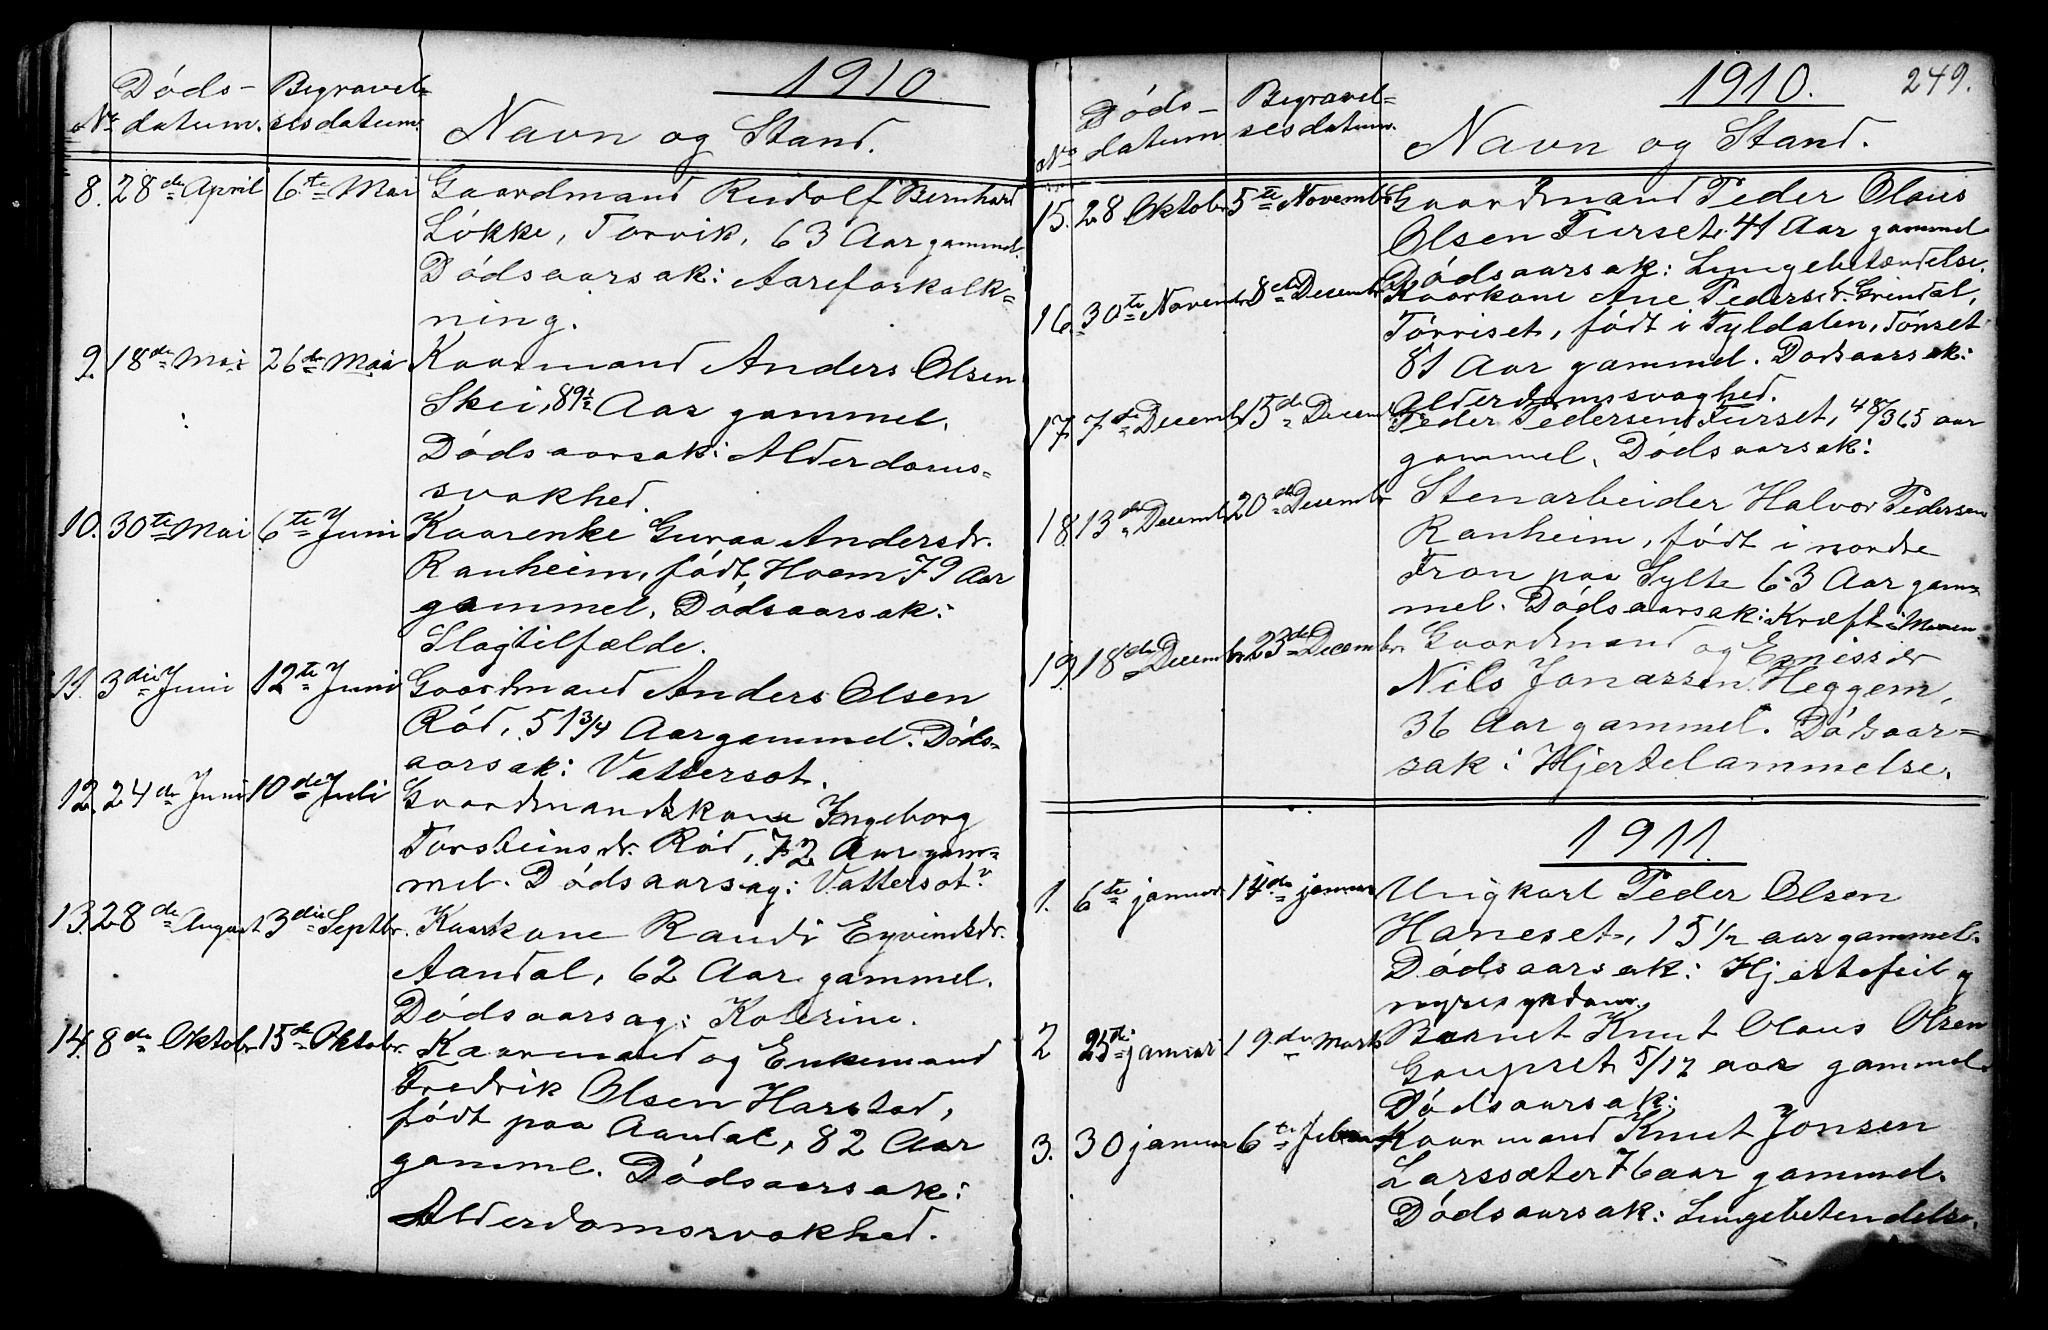 1910
Døds- Begravel=
No datum. sesdatum. Navn og Stand.
8. 28de April 6te Mai Gaardmand Rudolf Bernhard
Løkke, Torvik, 63 Aar gammel.
Dødsaarsak: Aareforkalk=
ning.
9. 18de Mai 26de Mai Kaarmand Anders Olsen
Skei, 89½ Aar gammel.
Dødsaarsak: Alderdoms=
svakhed.
10. 30te Mai 6te Juni Kaarenke Guraa Andersdr.
Ranheim, født Hoem 79 Aar
gammel. Dødsaarsak:
Slagtilfælde.
11. 3die Juni 12te Juni Gaardmand Anders Olsen
Rød, 51 3/4 Aar gammel. Døds=
aarsak: Vattersot.
12. 24de Juni 10de Juli Gaardmandskone Ingeborg
Torsteinsdr. Rød, 72 Aar gam=
mel. Dødsaarsag: Vattersot.
13. 28de August 3die Septbr. Kaarkone Randi Eyvindsdr.
Aandal, 62 Aar gammel.
Dødsaarsag: Kolerine.
14. 8de Oktobr 15de Oktobr. Kaarmand og Enkemand
Fredrik Olsen Harstad,
født paa Aandal, 82 Aar
gamml. Dødsaarsak:
Alderdomssvakhed.
1910. 249.
Døds- Begravel=
No datum sesdatum. Navn og Stand.
15. 28 Oktobr 5te Novembr Gaardmand Peder Olaus
Olsen Furset, 41 Aar gammel
Dødsaarsak: Lungebetændelse.
16. 30te Novembr 8de Decembr Kaarkone Ane Pedersdr. Grindal,
Torriset, født i Tyldalen, Tønset
81 Aar gammel. Dødsaarsak:
Alderdomssvaghed.
17. 7de Decembr 15de Decembr Peder Pedersen Furset, 48/365 aar
gammel. Dødsaarsak:
18. 13de Decembr 20de Decembr Stenarbeider Halvor Pedersen
Ranheim, født i nordre
Fron paa Sylte 63 Aar gam=
mel. Dødsaarsak: Kræft i Maven
19. 18de Decembr 23de Decembr. Gaardmand og
Nils Jonassen Heggem,
36 Aar gammel. Dødsaar=
sak: Hjertelammelse.
1911.
1. 6te januar 14de januar Ungkarl Peder Olsen
Haneset, 15 1/2 aar gammel.
Dødsaarsak: Hjertefeil og
nyresygdom.
2 25de januar 19de Marts Barnet Knut Olaus Olsen
Gaupset 5/12 aar gammel.
Dødsaarsak:
3. 30 januar 6te Februar Kaarmand Knut Jonsen
Larssæter 76 aar gammel.
Dødsaarsak: Lungebetendelse.